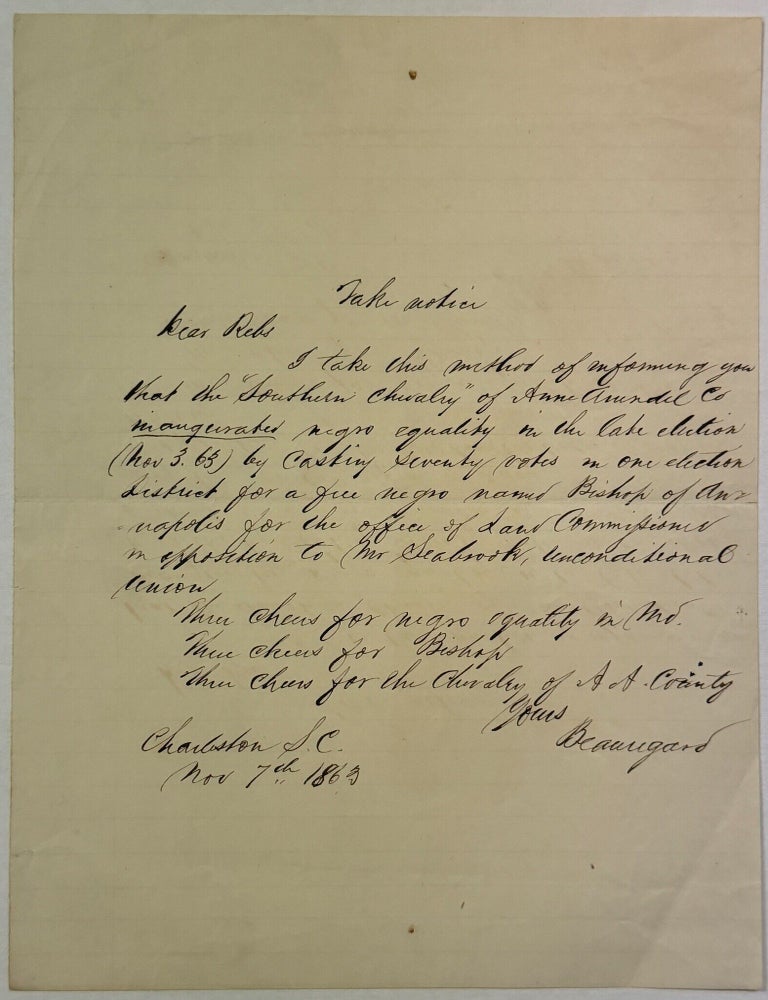 Take notice
Dear Rebs
I take this method of informing you
that the "Southern Chivalry" of Anne Arundel Co
inaugurated negro equality in the late election
(Nov 3. 63) by casting seventy votes in one election
District for a free negro named Bishop of An-
-napolis for the office of Land Commissioner
in opposition to Mr Seabrook, unconditional
Union
Three cheers for negro equality in Md.
Three cheers for Bishop
Three cheers for the Chivalry of A A. County
Yours
Beauregard
Charleston S.C.
Nov 7th 1863